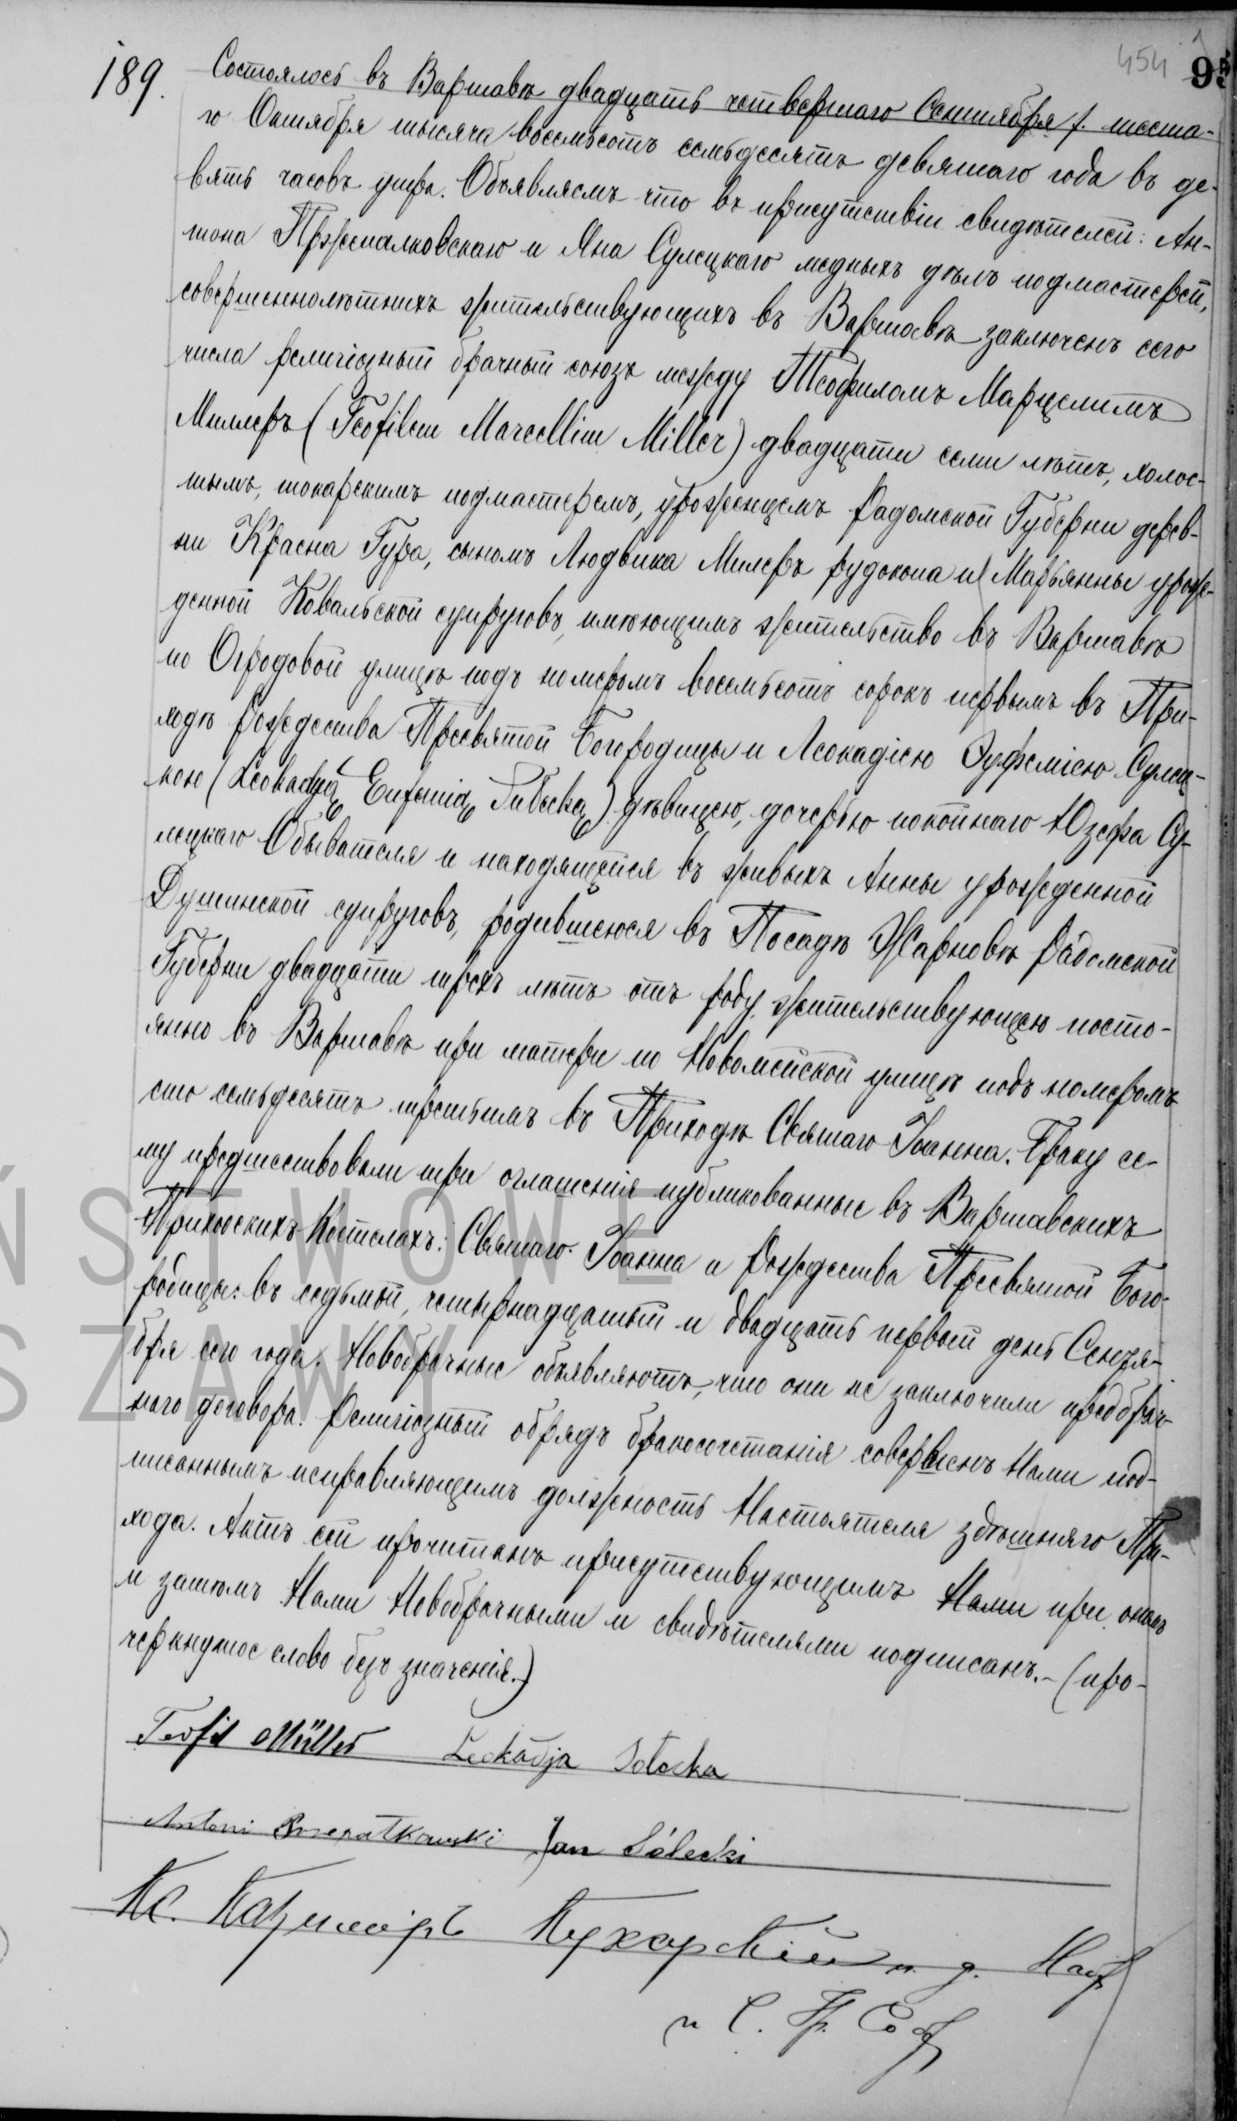 454
95
189.
Состоялось въ Варшавѣ двадцать четвертаго Сентября /. шеста-
го Октября тысяча восемьсотъ семьдесятъ девятаго года въ де-
вять часовъ утра. Объявляемъ что въ присутствіи свидѣтелей: Ан-
тона Пржепалковскаго и Яна Сулецкаго медныхъ дѣлъ подмастерей,
совершеннолѣтнихъ жительствующихъ въ Варшавѣ заключенъ сего
числа религіозный брачный союзъ между Теофиломъ Марцелимъ
Миллеръ (Teofilem Marcellim Miller) двадцати семи лѣтъ, холос-
тымъ, токарскимъ подмастеремъ, уроженцемъ Радомской Губерни дерев-
ни Красна Гура, сыномъ Людвика Милеръ рудокопа и Марьянны урож-
денной Ковальской супруговъ, имѣющимъ жительство въ Варшавѣ
по Огродовой улицѣ подъ номеромъ восемьсотъ сорокъ первымъ въ При-
ходѣ Рождества Пресвятой Богородицы и Леокадіею Эуфеміею Сулец-
кою (Leokadyą Eufemią) дѣвицею, дочерью покойнаго Юзефа Су-
лецкаго Обывателя и находящейся въ живыхъ Анны урожденной
Душинской супруговъ, родившеюся въ Посадѣ Жарновѣ Радомской
Губерни двадцати трехъ лѣтъ отъ роду жительствующею посто-
янно въ Варшавѣ при матери по Новомейской улицѣ подъ номеромъ
сто семьдесятъ третьимъ въ Приходѣ Святаго Іоанна. Браку се-
му предшествовали три оглашенія публикованные въ Варшавскихъ
Приходскихъ Костелахъ: Святаго Іоанна и Рождества Пресвятой Бого-
родицы: въ седьмый, четырнадцатый и двадцать первый день Сентя-
бря сего года. Новобрачные объявляютъ, что они не заключили предбрач-
наго договора. Религіозный обрядъ бракосочетанія совершенъ Нами под-
писаннымъ исправляющимъ должность Настоятеля здѣшняго При-
хода. Актъ сей прочитанъ присутствующимъ Нами при ономъ
и затѣмъ Нами Новобрачными и свидѣтелями подписанъ.- (про-
черкнутое слово безъ значенія.-)
Teofil Müller Leokadja Solecka
Antoni Przepałkowski Jan Sólecki
Кс. Казимиръ и. д. Наст
и С. Гр. Сост
ŃSTWOWE
SZAWY